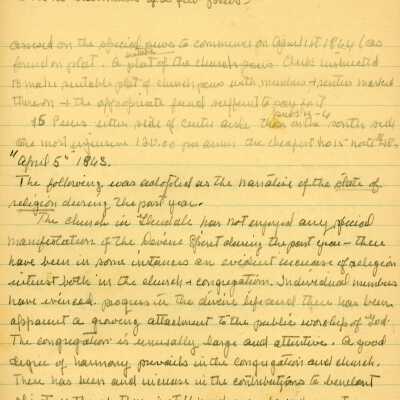 assessed on the special pews to commence on April 1st 1864 (as
found on plat. A plat of the church pews. Clerk instructed
to make suitable plat of church pews with numbers & renters marked
thereon & the appropriate fund sufficient to pay
15 Pews either side of center aisle on the south side
one most expensive 130.00 per annum the cheapest no 15
"April 5" 1863.
The following was adopted as the narrative of the state of
religion during the past year.
The church in Glendale has not enjoyed any special
manifestation of the Devine Spirit during the past year - there
have been in some instances an evident increase of religion
interest both in the church & congregation. Individual members
have evinced progress in the divine life and there has been
apparent a growing attachment to the public worship of God.
The congregation is unusually large and attentive. A good
degree of harmony prevails in the congregation and church.
There has been and increase in the contributions to benevolent